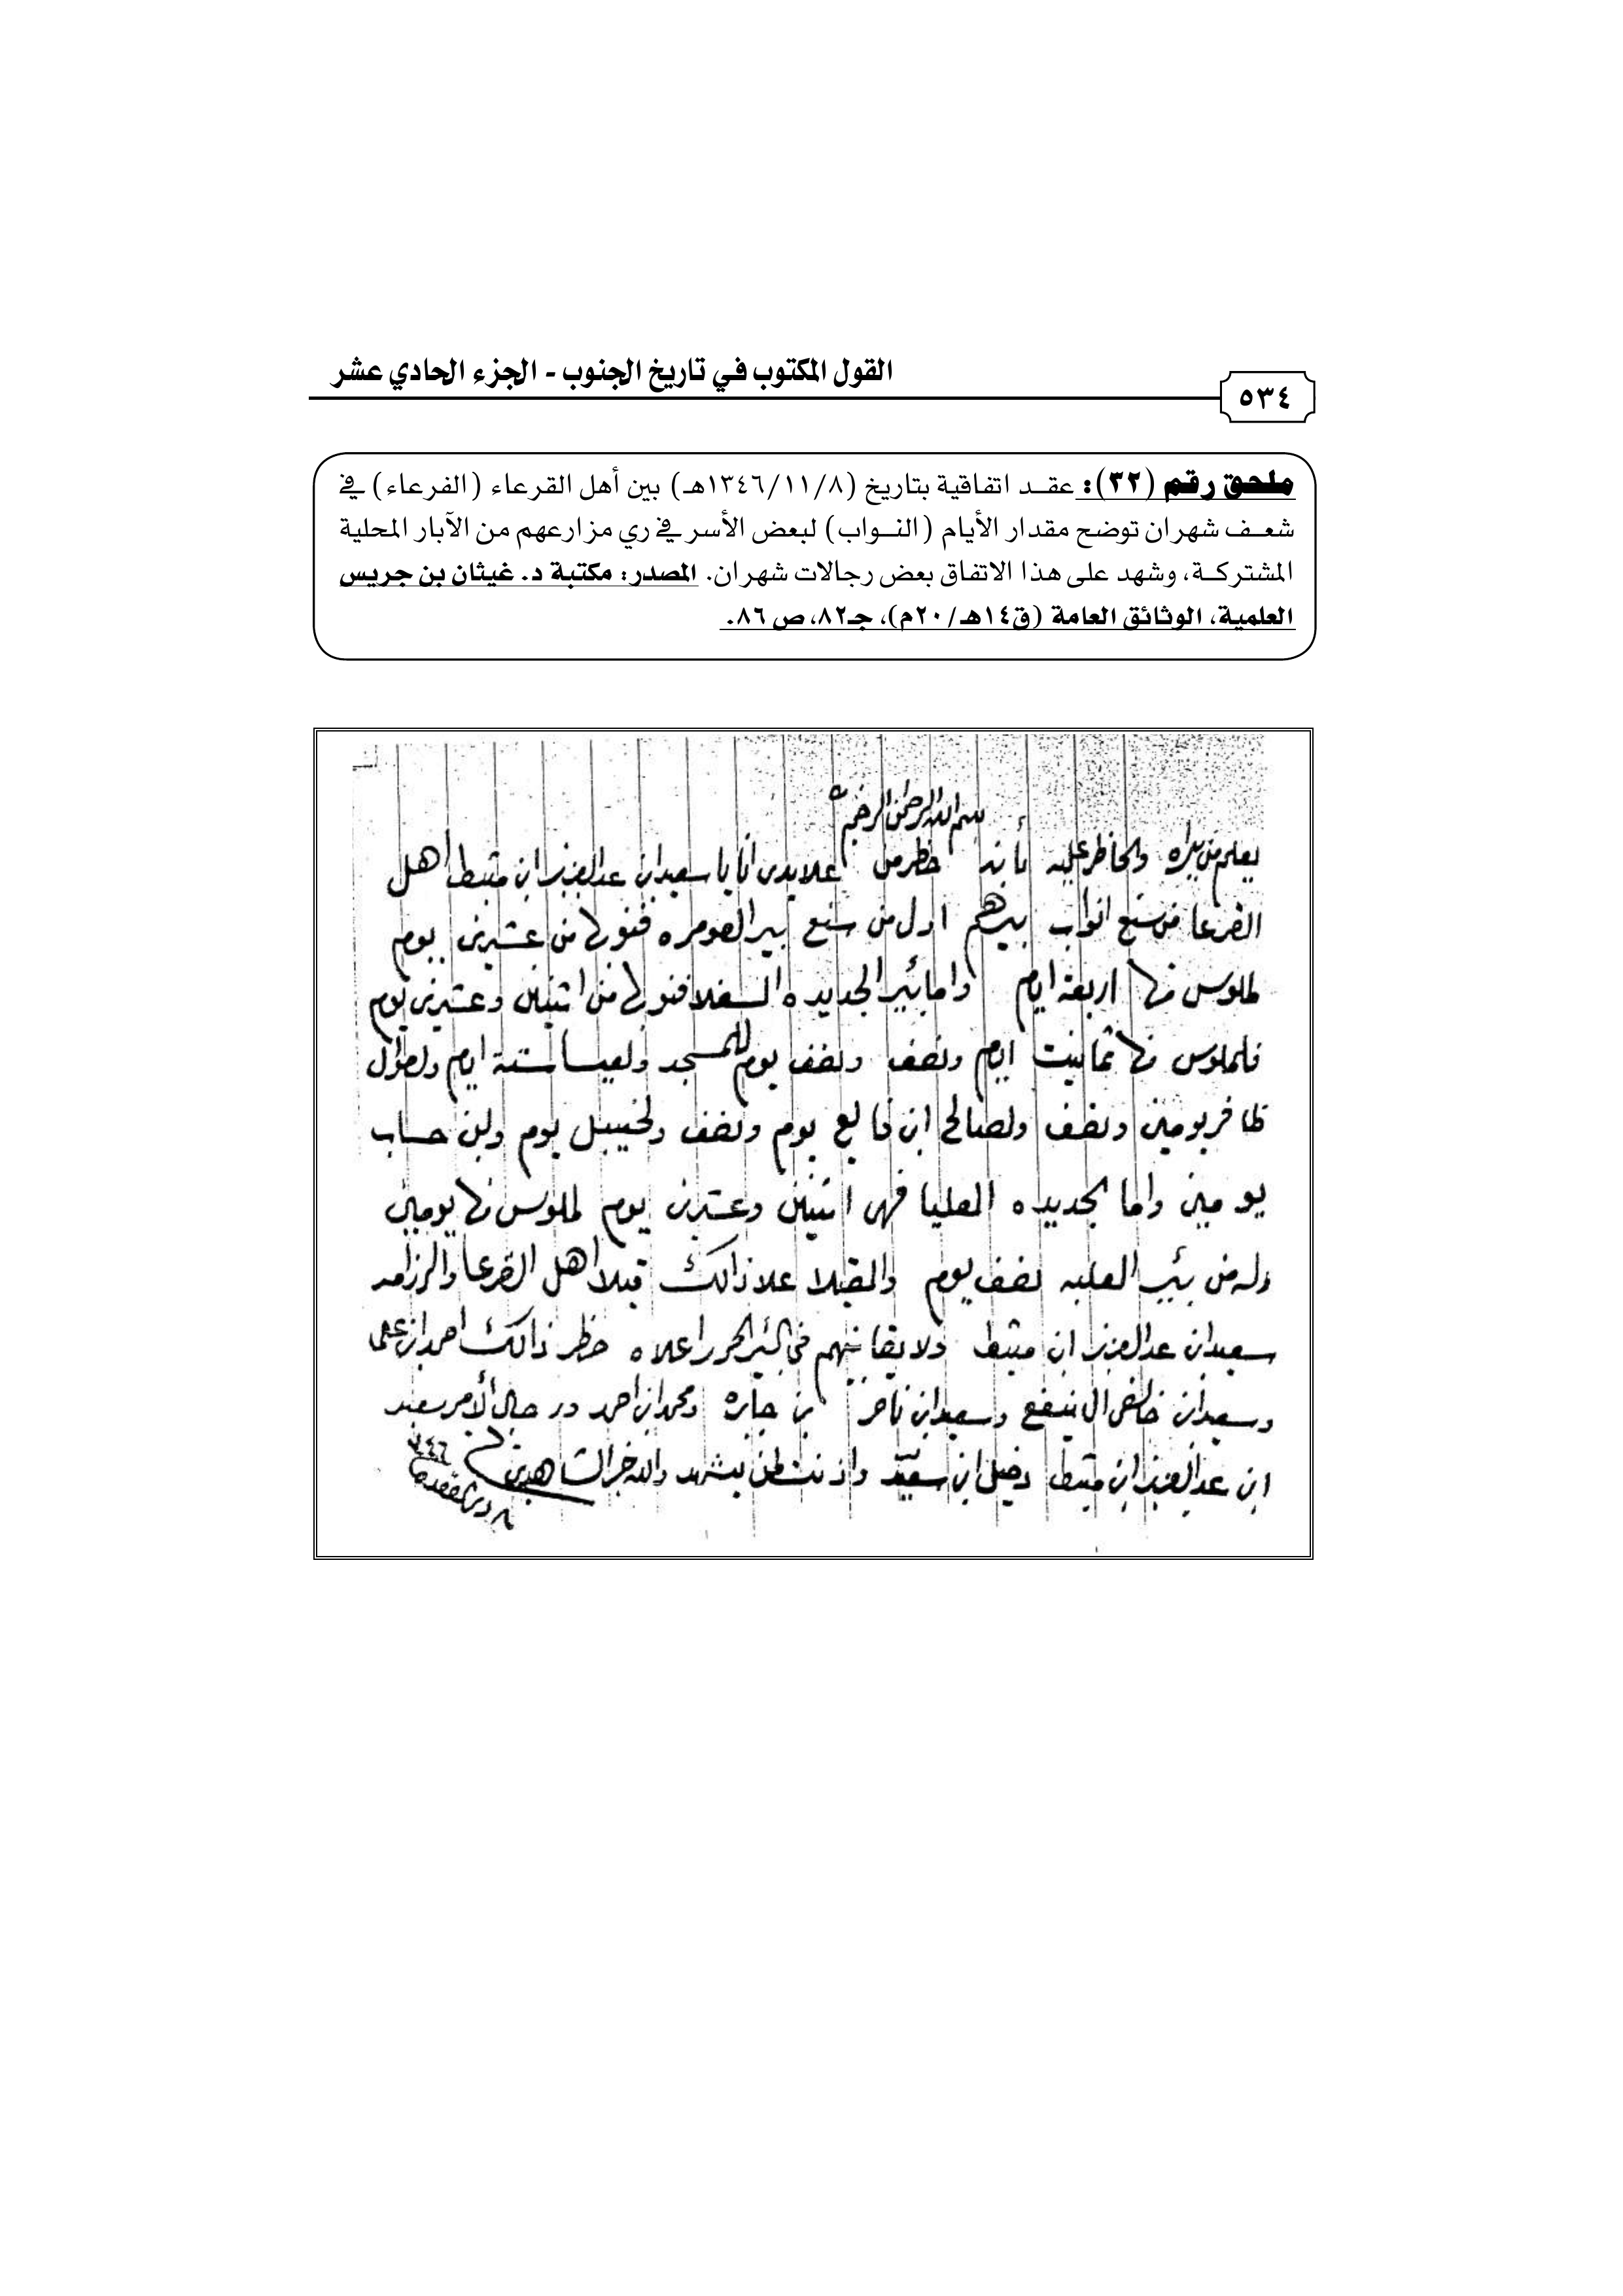 القول المكتوب في تاريخ الجنوب - الجزء الحادي عشر
٥٣٤
ملحق رقم (٣٢): عقد اتفاقية بتاريخ (١٣٤٦/١١/٨هـ) بين أهل القرعاء (الفرعاء) في
شعف شهران توضح مقدار الأيام (النواب) لبعض الأسر في ري مزارعهم من الآبار المحلية
المشتركة، وشهد على هذا الاتفاق بعض رجالات شهران. المصدر: مكتبة د. غيثان بن جريس
العلمية، الوثائق العامة (ق١٤هـ/٢٠م)، جـ٨٢، ص ٨٦.
بسم الله الرحمن الرحيم
يعلم من يراه والحاظر عليه بأنه حظر من علا يدي انا يا سعيد ابن عبد العزيز ابن مشيط اهل
القرعا من سبع انواب بيرهم اول من سبع بير الصومره فنوبها من عشرين يوم
لملوس منها اربعة ايام واما بئير الجديده السفلا فنوبها من اثنين وعشرين يوم
فلملوس منها ثمانيت ايام ونصف ونصف يوم للمسجد ولعيسا ستة ايام
ظافر يومين ونصف ولصالح ابن يوم ونصف يوم ولبن حساب
يومين واما الجديده العليا فهي اثنين وعشرين يوم لملوس منها يومين
وله من بئير العليه نصف يوم والقبلا علا ذالك قبلا اهل القرعا
سعيد ابن عبد العزيز ابن مشيط ولا بقا بينهم في البئر المحرر اعلاه حظر ذالك احمد ابن علي
وسعيد ابن وسعيد ابن ناصر بن جاره ومحمد ابن احمد سعيد
ابن عبد العزيز ابن مشيط ابن سعيد يشهد والله خير الشاهدين
٨ ٣٤٦